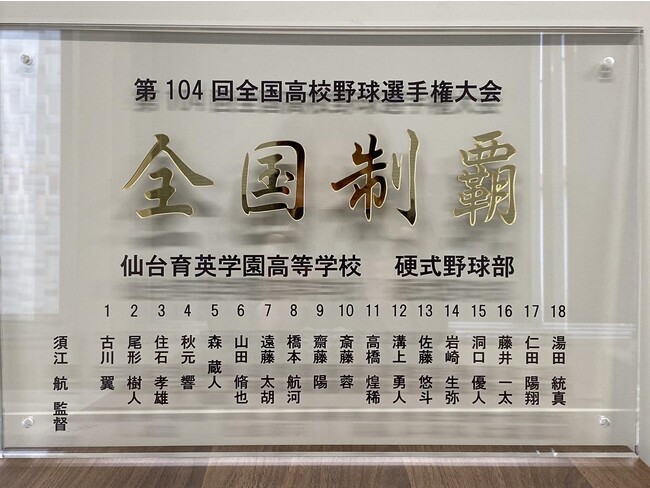 第104回全国高校野球選手権大会
全国制覇
仙台育英学園高等学校 硬式野球部
須江 航 監督
1 古川 翼
2 尾形 樹人
3 住石 孝雄
4 秋元 響
5 森 蔵人
6 山田 脩也
7 遠藤 太胡
8 橋本 航河
9 齋藤 陽
10 斎藤 蓉
11 高橋 煌稀
12 溝上 勇人
13 佐藤 悠斗
14 岩崎 生弥
15 洞口 優人
16 藤井 一太
17 仁田 陽翔
18 湯田 統真